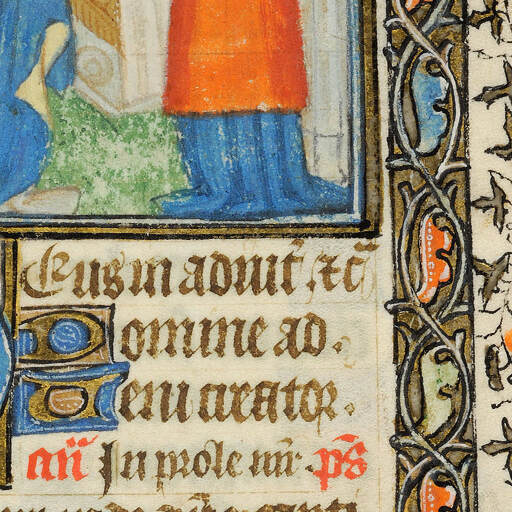 Eus in adiut̄ ⁊c̄
Domine ad
Veni creator.
an̄ In prole mr̄. p̄s